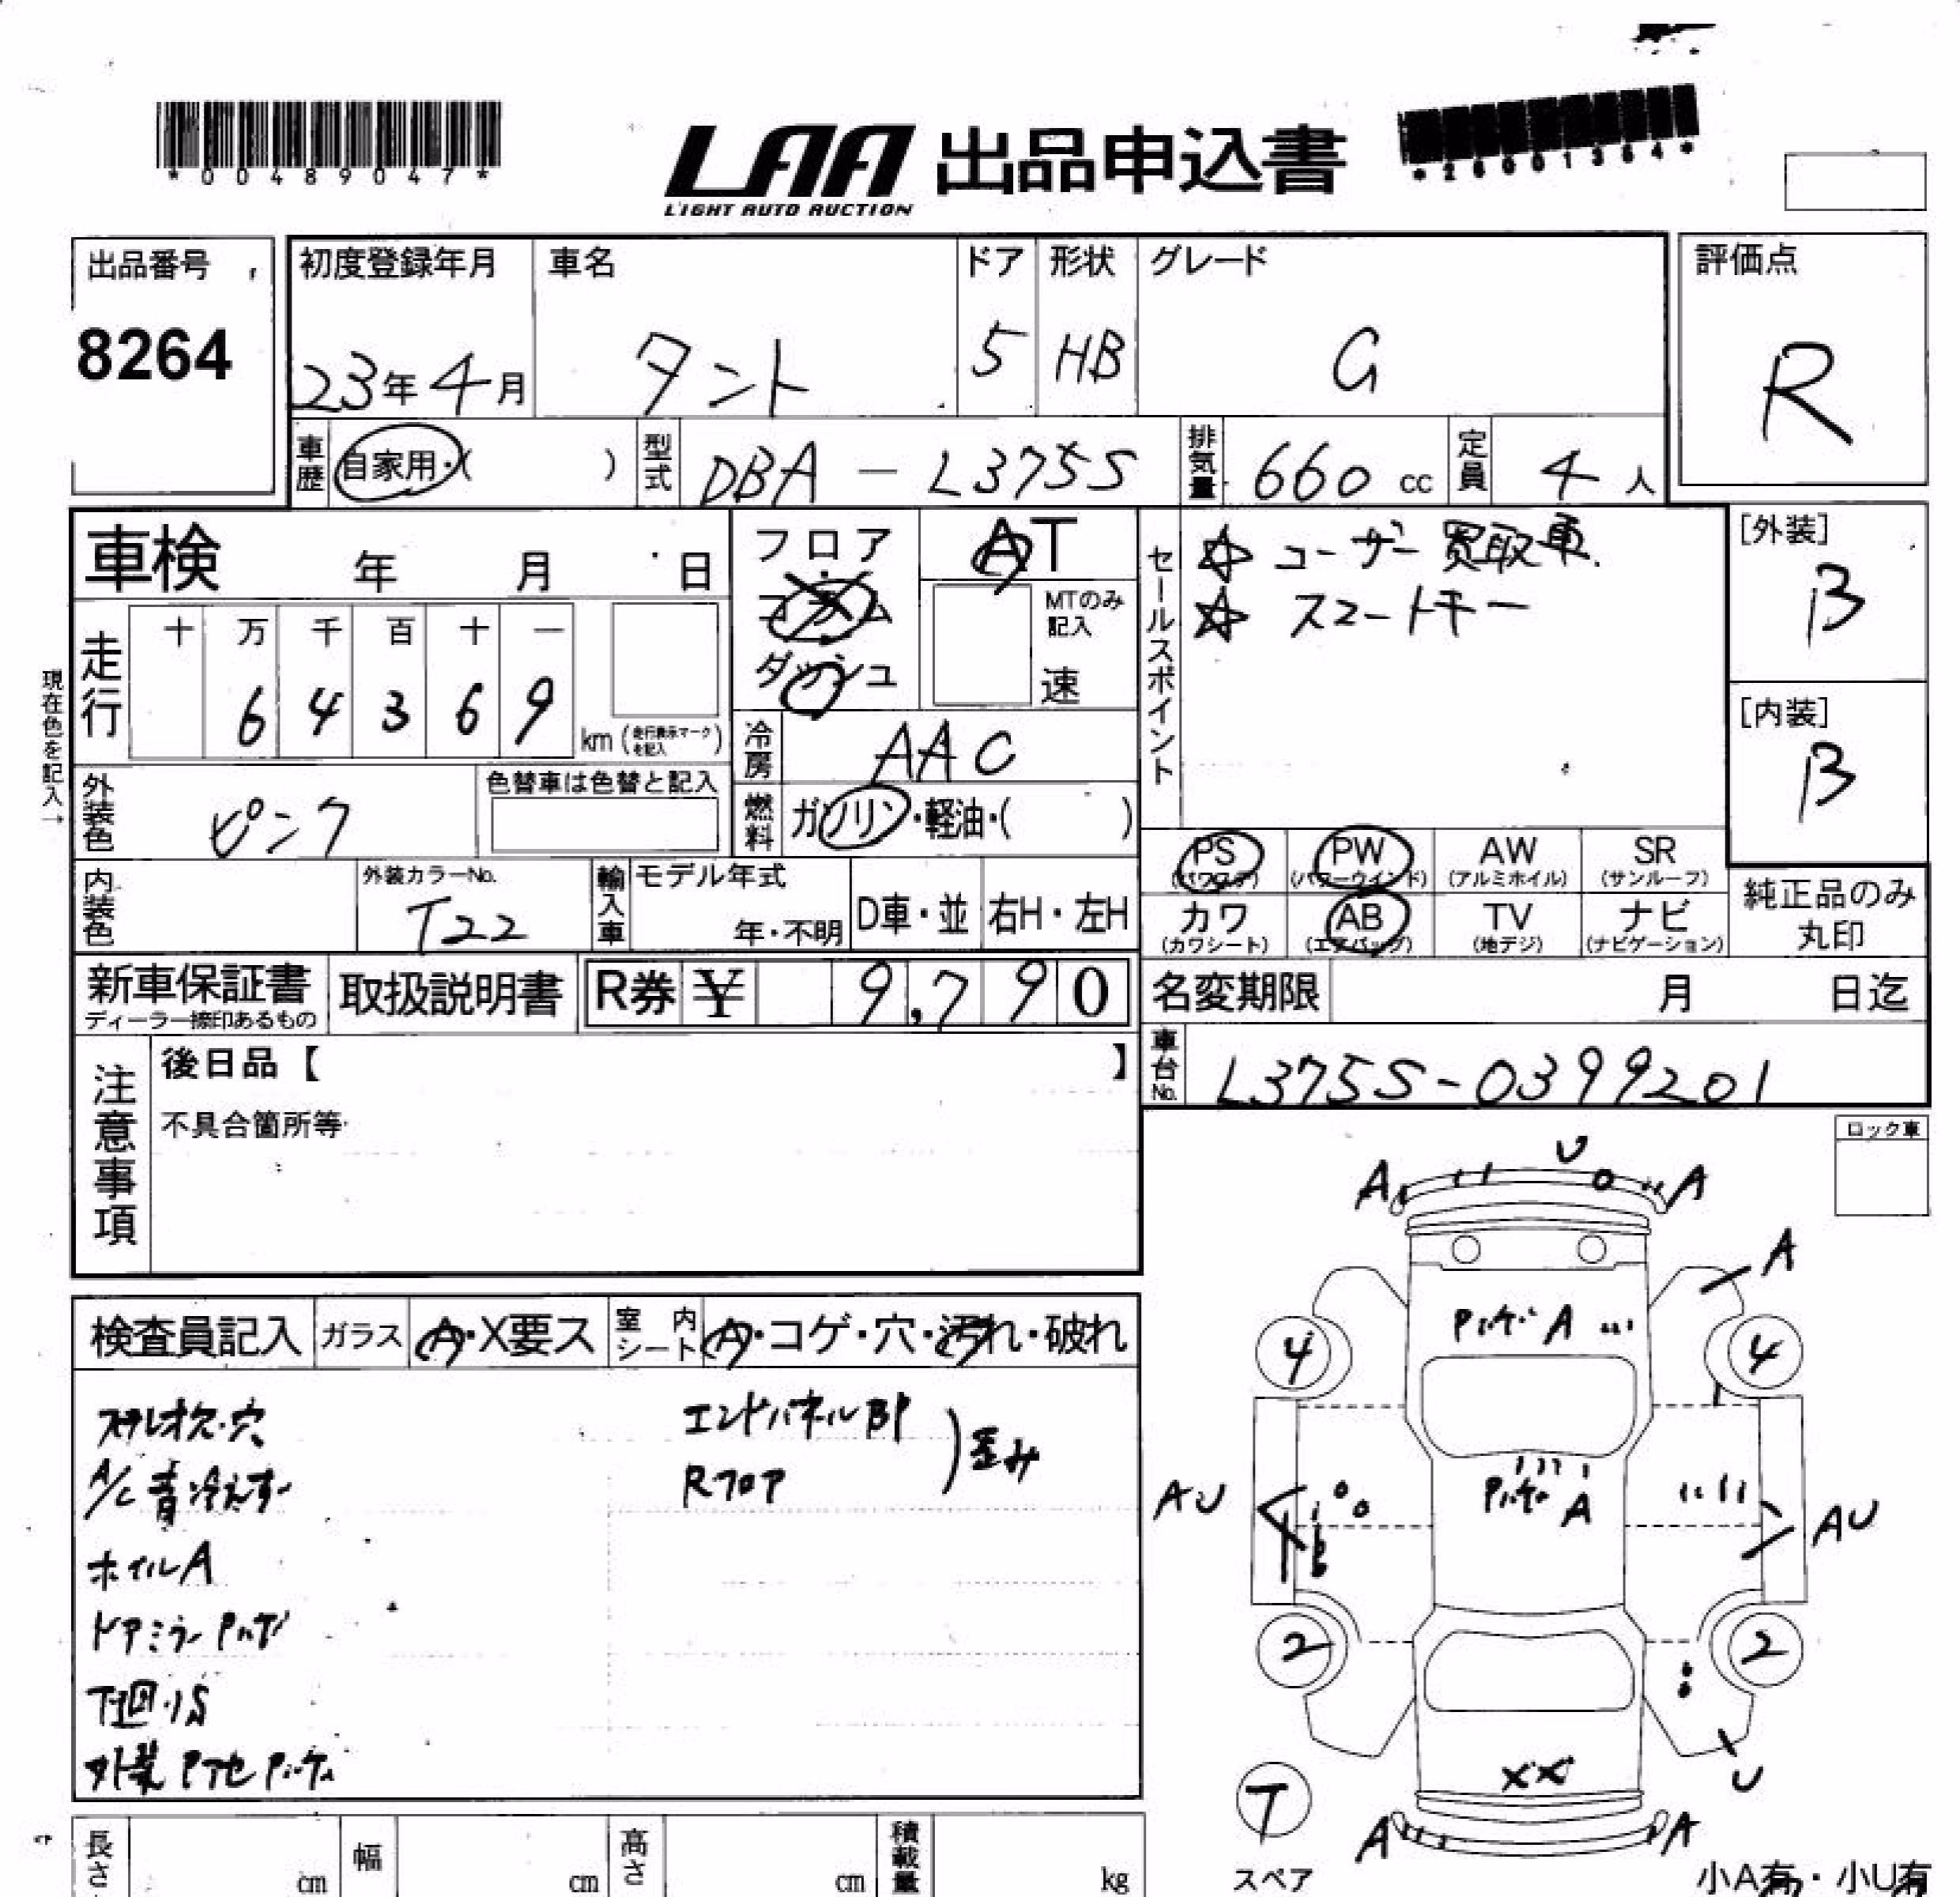 *00489047*
LAA 出品申込書
LIGHT AUTO AUCTION
*26001364*
出品番号
8264
初度登録年月
23年4月
車名
タント
ドア
5
形状
HB
グレード
G
評価点
R
車歴 自家用・( )
型式 DBA-L375S
排気量 660cc
定員 4人
車検 年 月 日
走行
十 万 千 百 十 一
6 4 3 6 9
km(走行表示マークを記入)
現在色を記入→
フロア
コラム
ダッシュ
AT
MTのみ記入
速
冷房 AAC
燃料 ガソリン・軽油・( )
セールスポイント
☆ ユーザー買取車.
☆ スマートキー
[外装]
B
[内装]
B
外装色 ピンク
色替車は色替と記入
内装色
外装カラーNo.
T22
輸入車
モデル年式
年・不明
D車・並
右H・左H
PS (パワステ)
PW (パワーウインド)
AW (アルミホイル)
SR (サンルーフ)
カワ (カワシート)
AB (エアバッグ)
TV (地デジ)
ナビ (ナビゲーション)
純正品のみ丸印
新車保証書
ディーラー捺印あるもの
取扱説明書
R券 ¥ 9,790
名変期限 月 日迄
車台No. L375S-0399201
注意事項
後日品【 】
不具合箇所等
ロック車
検査員記入
ガラス A・X要ス
室内シート A・コゲ・穴・汚れ・破れ
ステレオ欠・穴
A/C 音 冷えず
ホイルA
ドアミラー
下回・S
外装
エンドパネル
Rフロア
歪み
U
A A
A
A
4 4
A
AU AU
2 2
XX
U
T
スペア
A A
小A有・小U有
長さ cm
幅 cm
高さ cm
積載量 kg